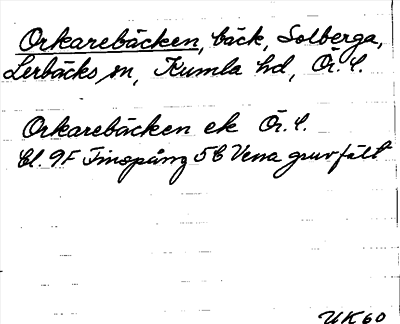 Orkarebäcken, bäck, Solberga,
Lerbäcks sn, Kumla hd, Ö.L.
Orkarebäcken ek Ö.L.
Bl. 9F Finspång 5b Vena gruvfält
UK60